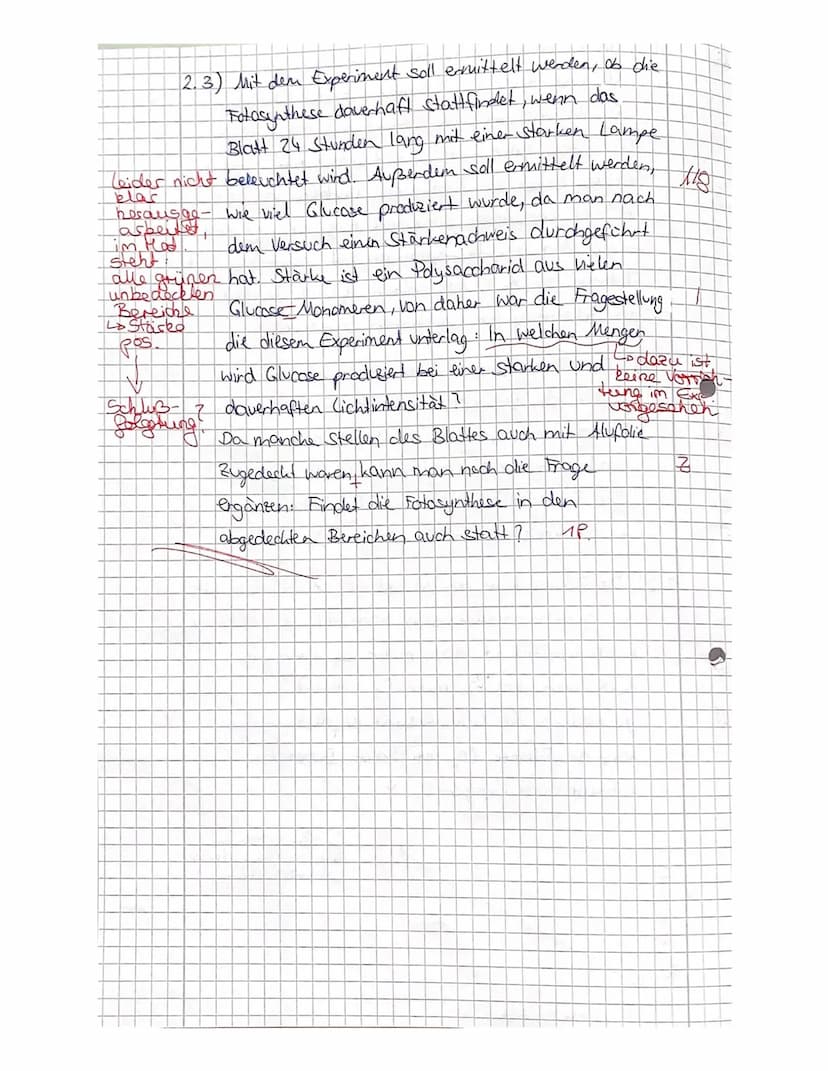 2.3) Mit dem Experiment soll ermittelt werden, ob die
Fotosynthese dauerhaft stattfindet, wenn das
Blatt 24 Stunden lang mit einer starken Lampe
beleuchtet wird. Außerdem soll ermittelt werden,
wie viel Glucose produziert wurde, da man nach
dem Versuch einen Stärkenachweis durchgeführt
hat. Stärke ist ein Polysaccharid aus vielen
Glucose-Monomeren, von daher war die Fragestellung
die diesem Experiment unterlag: In welchen Mengen
wird Glucose produziert bei einer starken und
dauerhaften Lichtintensität?
Da manche Stellen des Blattes auch mit Alufolie
zugedeckt waren, kann man noch die Frage
ergänzen: Findet die Fotosynthese in den
abgedeckten Bereichen auch statt? 1P.
leider nicht
klar
herausge-
arbeitet,
im Mat.
steht:
alle grünen
unbedeckten
Bereiche
↳ Stärke
pos.
Schluß- ?
folgerung!
118
1
↳ dazu ist
keine Vorrich-
tung im Exp
vorgesehen
Z